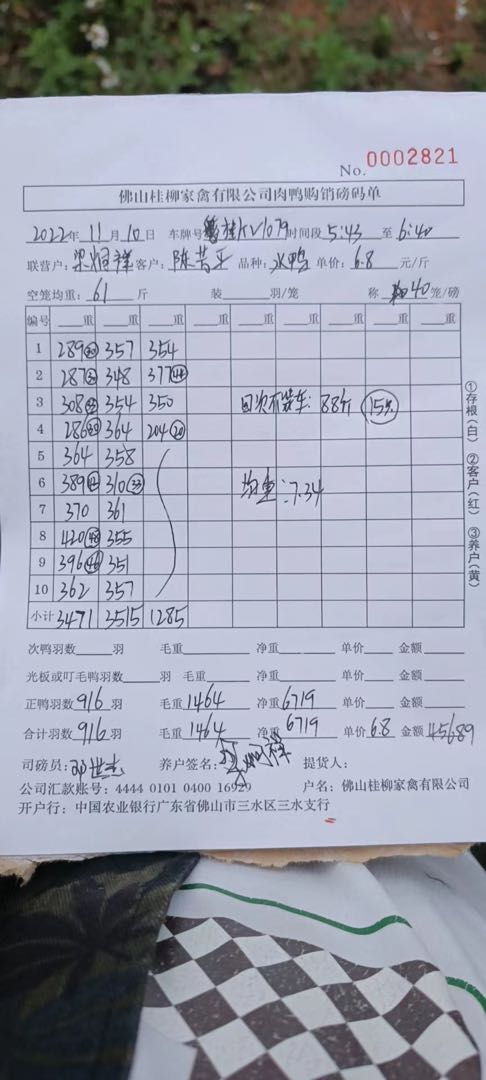 No. 0002821
佛山桂柳家禽有限公司肉鸭购销磅码单
2022年 11月 10日 车牌号 桂KV1079 时间段 5:43 至 6:40
联营户: 梁炳祥 客户: 陈 平 品种: 水鸭 单价: 6.8 元/斤
空笼均重: 61 斤 装 羽/笼 称 40 笼/磅
编号 重 重 重 重 重 重 重 重
1 289 357 354
2 287 348 377
3 308 354 350 次不装车: 88斤 15只
4 286 364 204 20
5 364 358
6 389 310 均重: 7.34
7 370 361
8 420 355
9 396 351
10 362 357
小计 3471 3515 1285
次鸭羽数 羽 毛重 净重 单价 金额
光板或叮毛鸭羽数 羽 毛重 净重 单价 金额
正鸭羽数 916 羽 毛重 1464 净重 6719 单价 金额
合计羽数 916 羽 毛重 1464 净重 6719 单价 6.8 金额 45689
司磅员: 邓世 养户签名: 提货人:
公司汇款账号: 4444 0101 0400 16929 户名: 佛山桂柳家禽有限公司
开户行: 中国农业银行广东省佛山市三水区三水支行
①存根(白) ②客户(红) ③养户(黄)